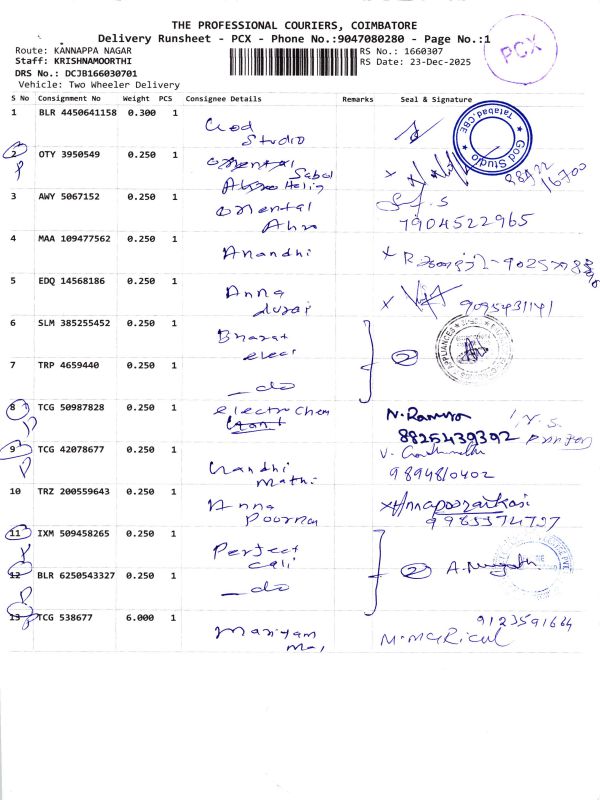 THE PROFESSIONAL COURIERS, COIMBATORE
Delivery Runsheet - PCX - Phone No.:9047080280 - Page No.:1
PCX
Route: KANNAPPA NAGAR
RS No.: 1660307
Staff: KRISHNAMOORTHI
RS Date: 23-Dec-2025
DRS No.: DCJB166030701
Vehicle: Two Wheeler Delivery
S No Consignment No Weight PCS Consignee Details Remarks Seal & Signature
1 BLR 4450641158 0.300 1 God Studio
God Studio
Tatabad.CBE
2 OTY 3950549 0.250 1
3 AWY 5067152 0.250 1 7904522965
4 MAA 109477562 0.250 1 Anandhi
5 EDQ 14568186 0.250 1 Anna durai 9095431141
6 SLM 385255452 0.250 1 Bharat elect
2
7 TRP 4659440 0.250 1 do
8 TCG 50987828 0.250 1 electro chem N. Ramya
8825439392
9 TCG 42078677 0.250 1 Gandhi mathi
9894810402
10 TRZ 200559643 0.250 1 Anna Poorna
11 IXM 509458265 0.250 1 Perfect cali
2
12 BLR 6250543327 0.250 1 do
13 TCG 538677 6.000 1 Mariyam 9123591664